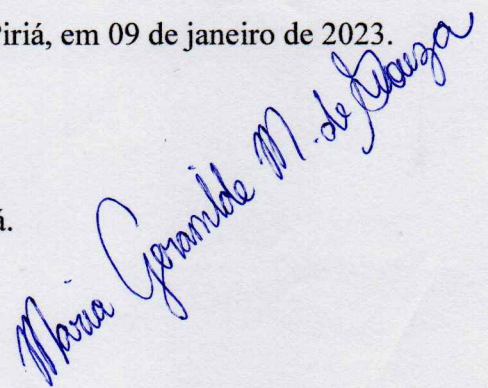 Piriá, em 09 de janeiro de 2023.
á.
Maria Geranilde M. de Souza